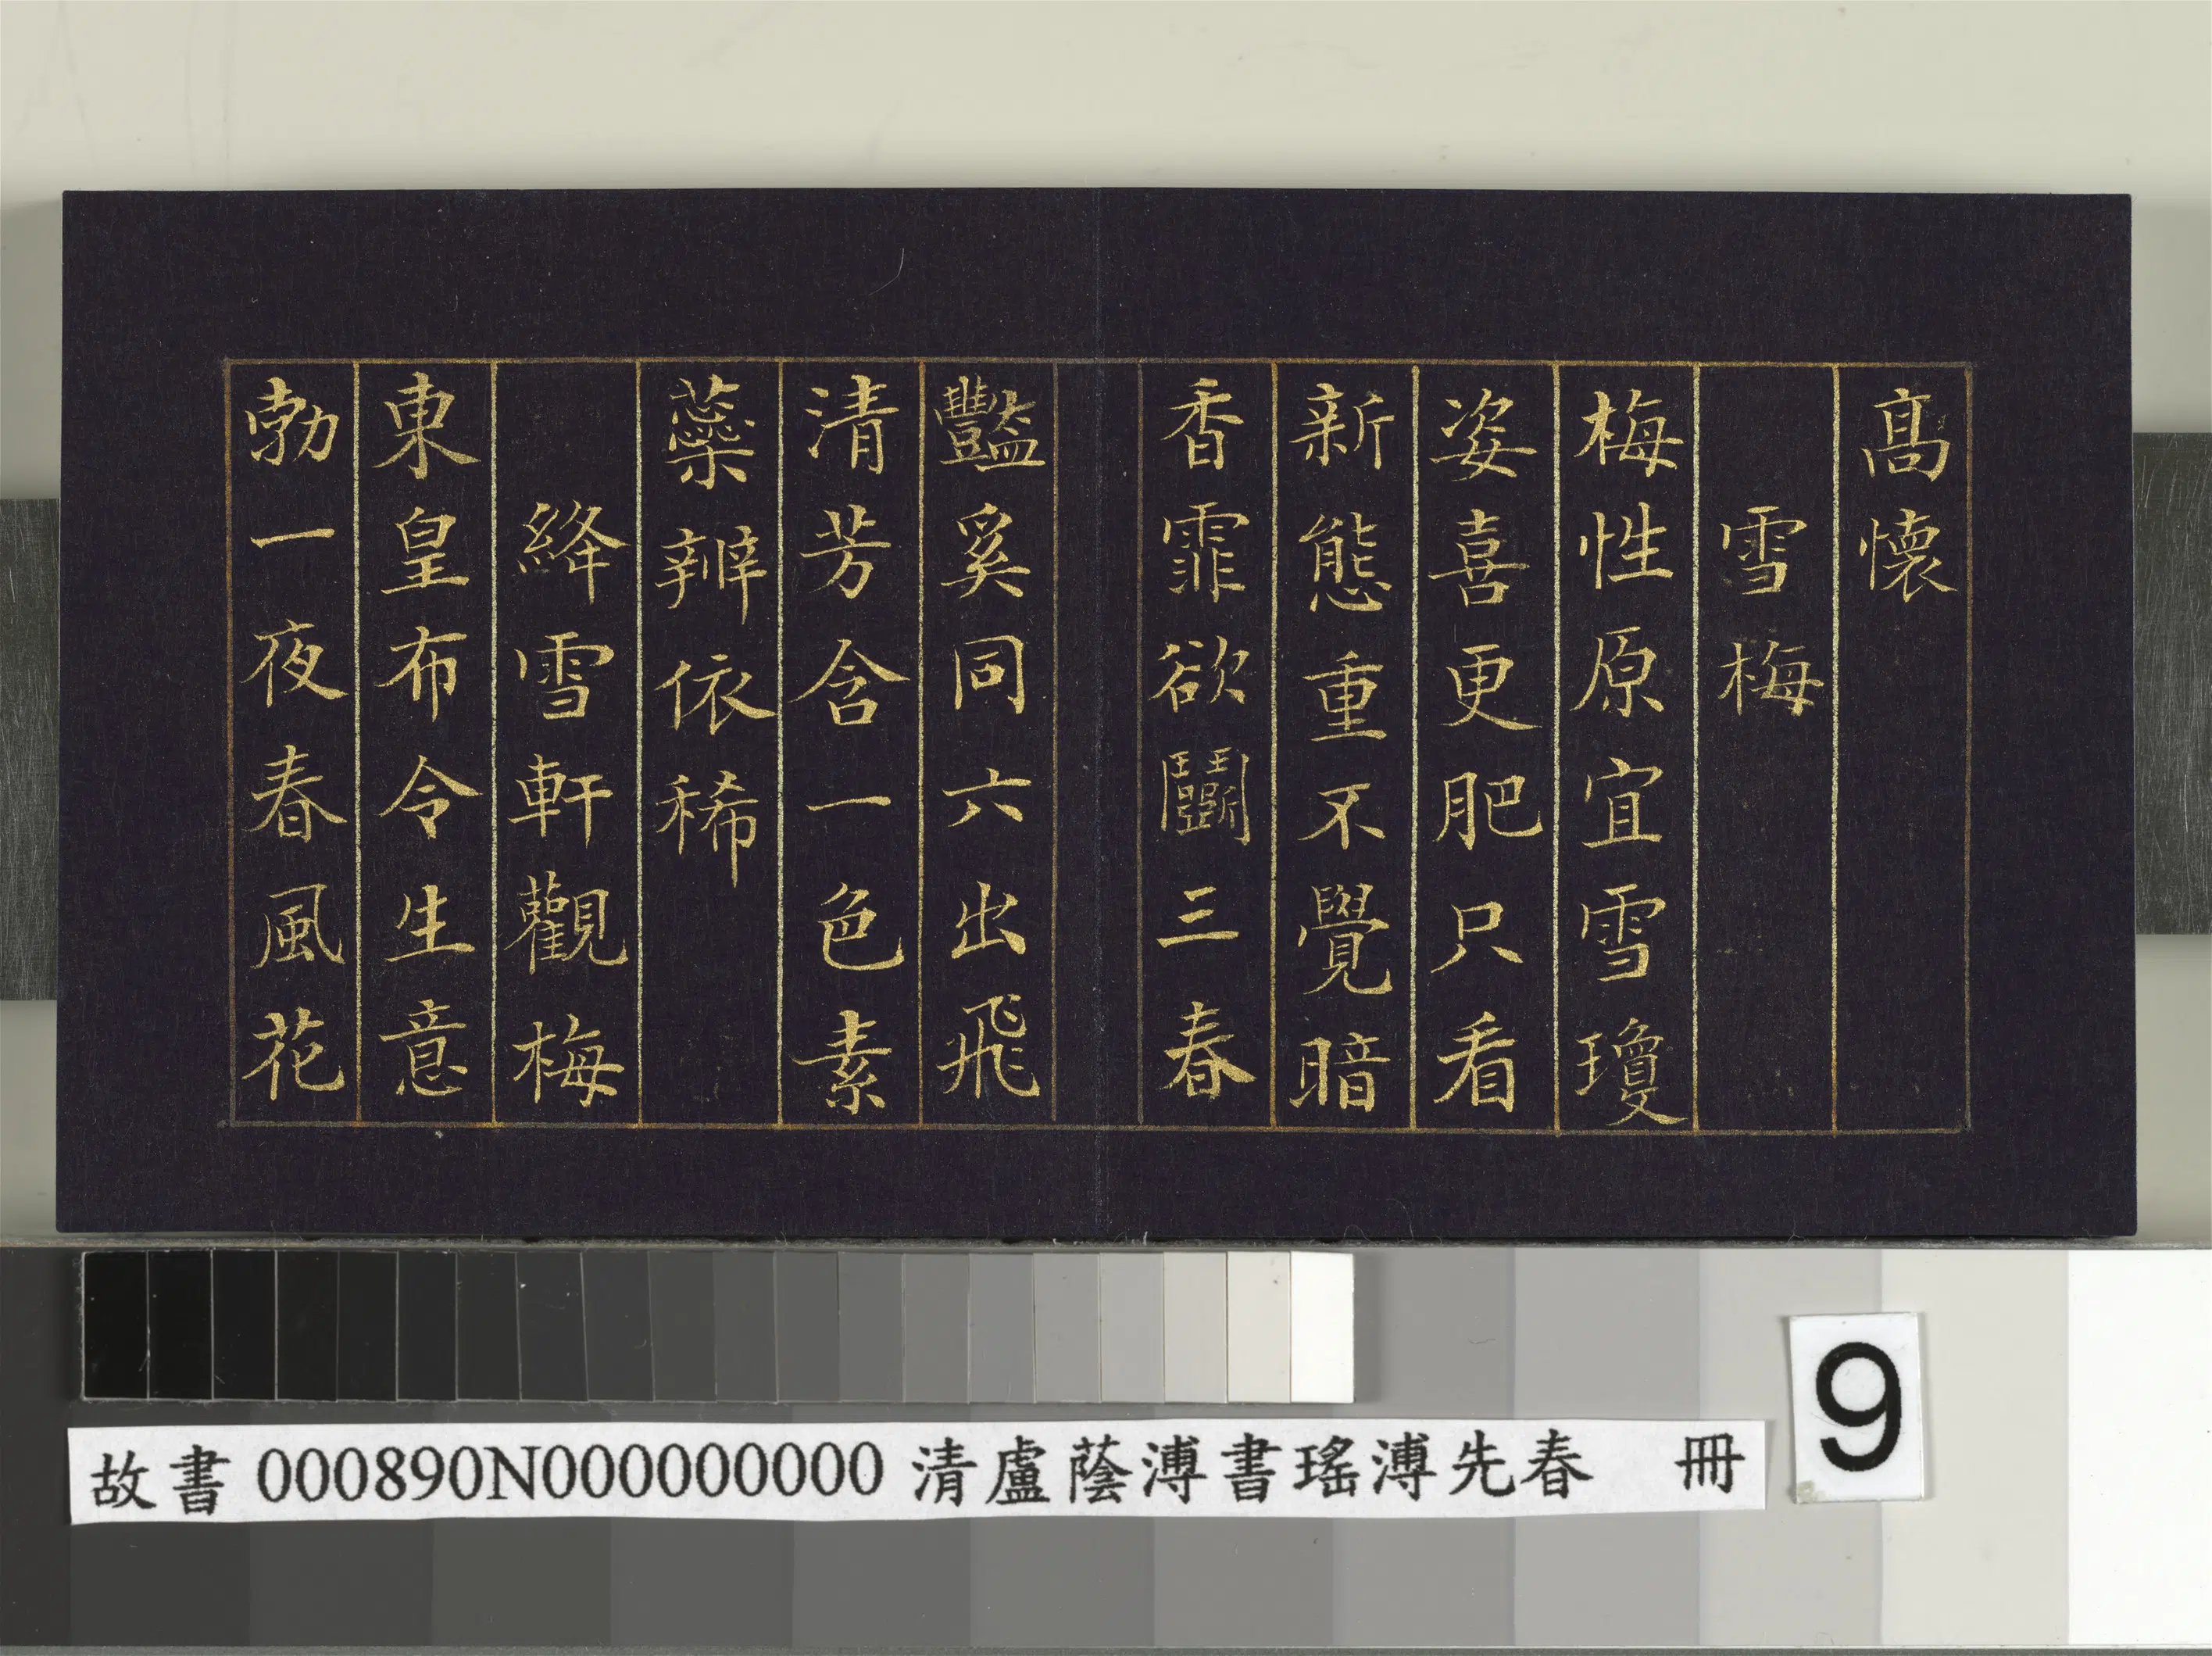 髙懷
雪梅
梅性原宜雪瓊
姿喜更肥只看
新態重不覺暗
香霏欲鬭三春
豔奚同六出飛
清芳含一色素
蘂辨依稀
絳雪軒觀梅
東皇布令生意
勃一夜春風花
9
故書000890N000000000清盧蔭溥書瑤溥先春 冊